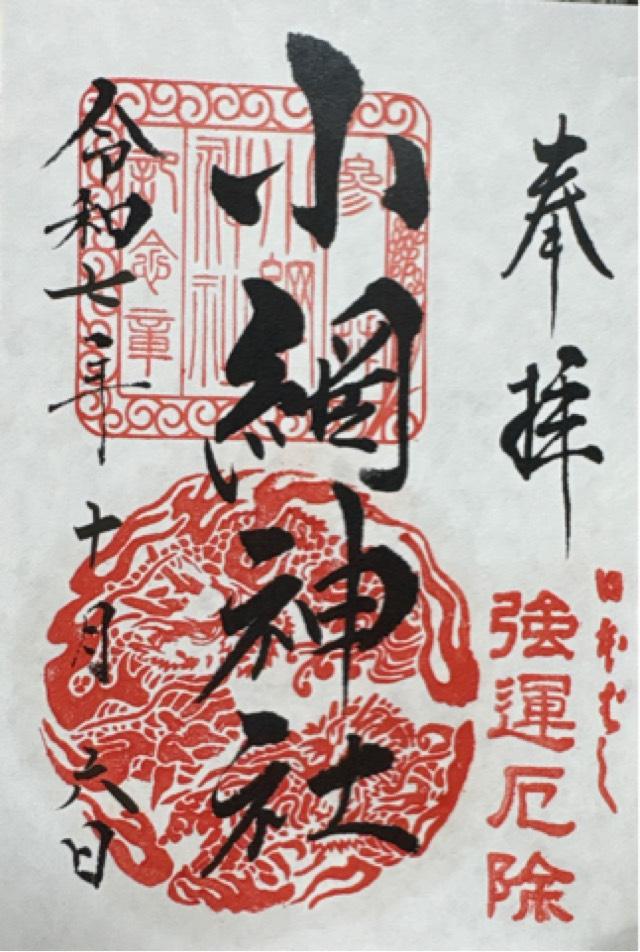 奉拝
日本ばし
強運厄除
小網神社
參拜
小網
神社
記念章
令和七年十月六日